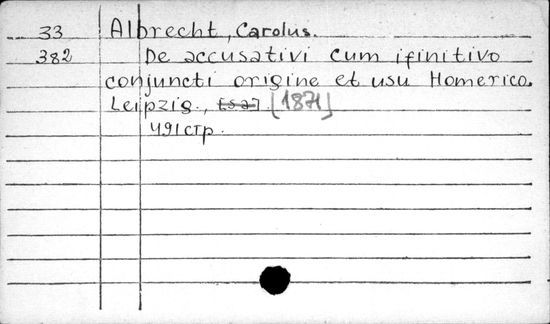 33 Albrecht, Carolus.
382 De accusativi cum ifinitivo
conjuncti origine et usu Homerico.
Leipzig., [1871]
491 стр.